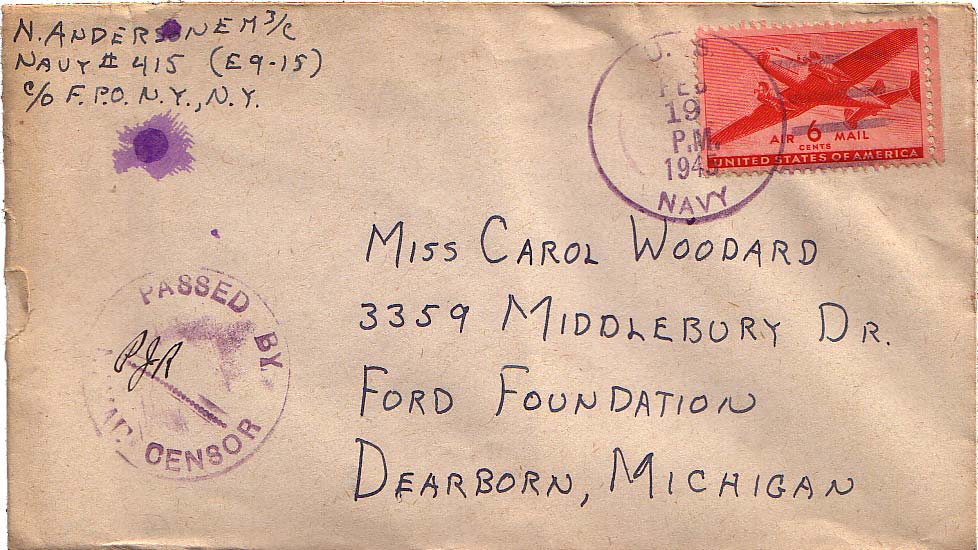 N. ANDERSON EM 3/c
NAVY # 415 (E9-15)
c/o F.P.O. N.Y., N.Y.
U. S.
FEB
19
P.M.
1945
NAVY
AIR 6 MAIL
CENTS
UNITED STATES OF AMERICA
MISS CAROL WOODARD
3359 MIDDLEBURY DR.
FORD FOUNDATION
DEARBORN, MICHIGAN
PASSED BY
CENSOR
PJR